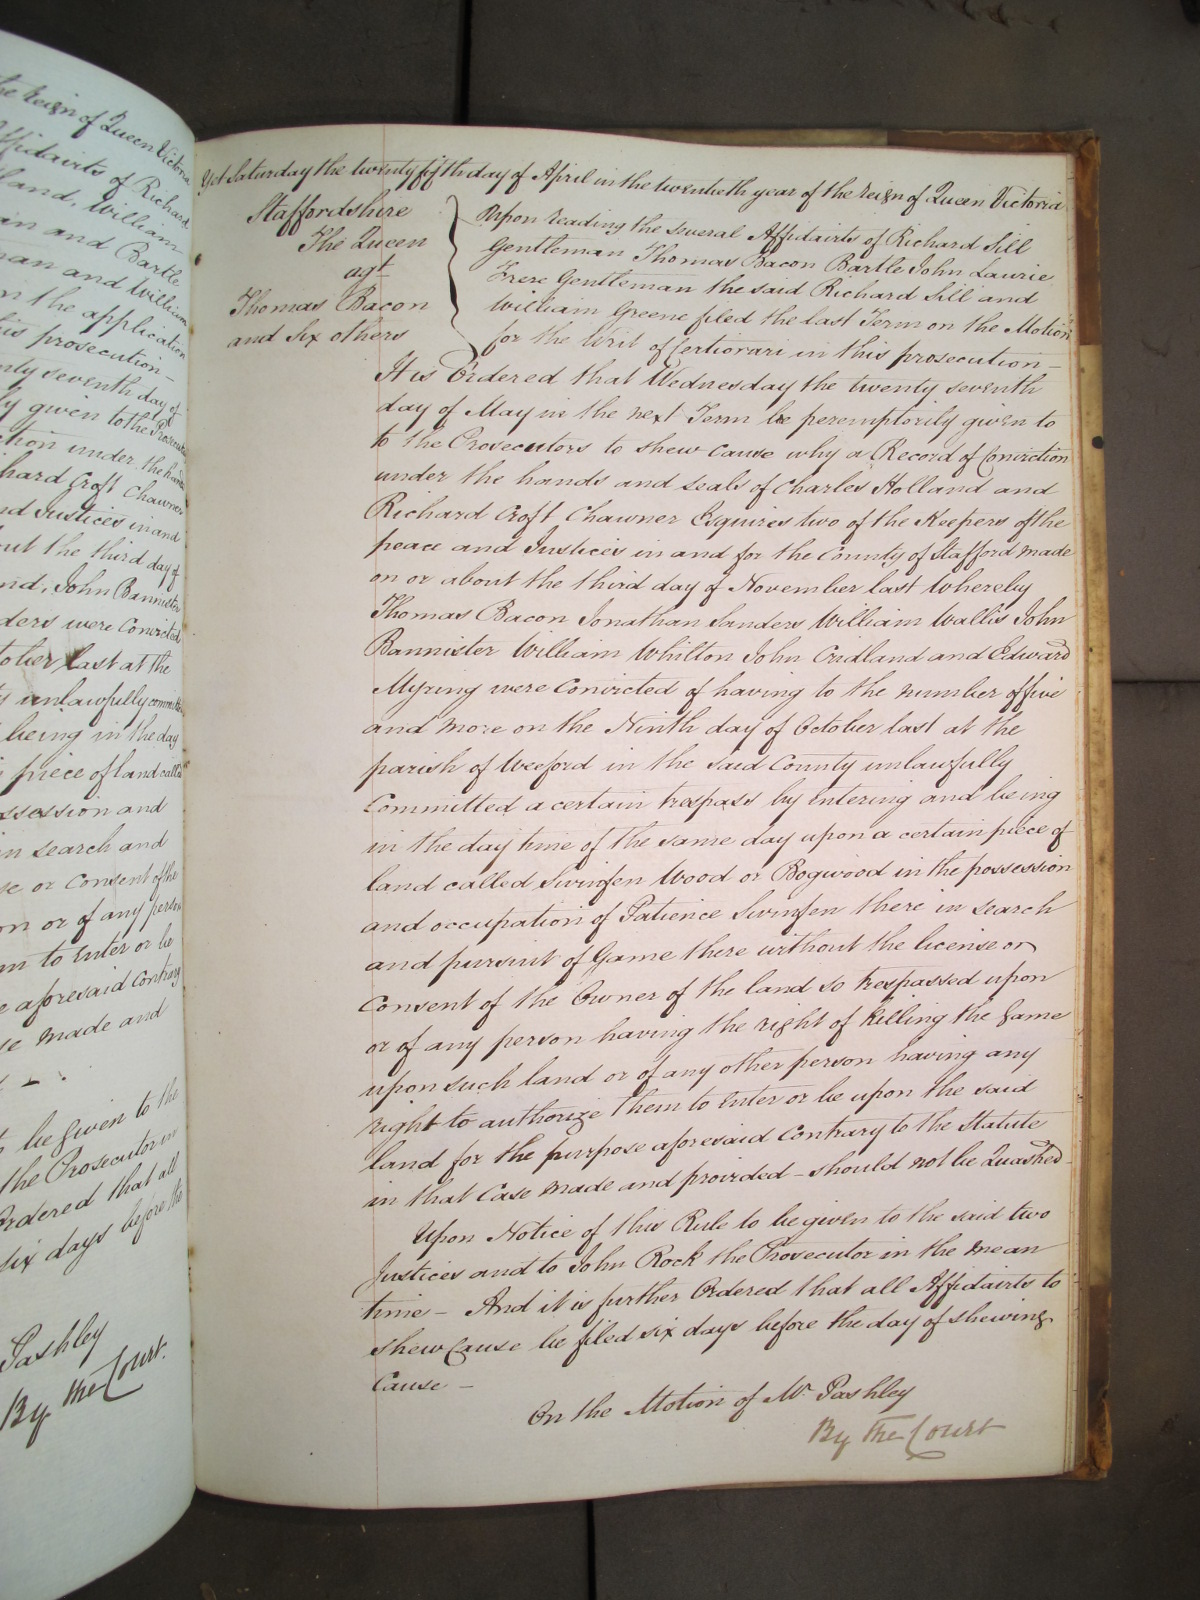 the Reign of Queen Victoria
Affidavits of Richard
land, William
and Bartle
man and William
in the application
his prosecution-
nty seventh day of
given to the Prosecutors
ction under the hands
hard Croft Chawner
nd Justices in and
out the third day of
nd, John Bannister
ders were Convicted
tober last at the
unlawfully committed
being in the day
piece of land called
ssession and
in search and
se or Consent of the
on or of any person
em to Enter or be
e aforesaid Contrary
se made and
to be given to the
the Prosecutor in
Ordered that all
six days before the
Pashley
By the Court.
Yet Saturday the twenty fifth day of April in the twentieth year of the reign of Queen Victoria
Staffordshire
The Queen
agt
Thomas Bacon
and Six others
Upon reading the several Affidavits of Richard Sill
Gentleman Thomas Bacon Bartle John Laurie
Frere Gentleman the said Richard Sill and
William Greene filed the last Term on the Motion
for the Writ of Certiorari in this prosecution-
It is Ordered that Wednesday the twenty seventh
day of May in the next Term be peremptorily given to
to the Prosecutors to shew Cause why a Record of Conviction
under the hands and seals of Charles Holland and
Richard Croft Chawner Esquires two of the Keepers of the
peace and Justices in and for the County of Stafford made
on or about the third day of November last Whereby
Thomas Bacon Jonathan Sanders William Wallis John
Bannister William Whilton John Cridland and Edward
Myring were Convicted of having to the number of five
and more on the Ninth day of October last at the
parish of Weeford in the said County unlawfully
Committed a certain trespass by entering and being
in the day time of the same day upon a certain piece of
land called Swinfen Wood or Bogwood in the possession
and occupation of Patience Swinfen there in search
and pursuit of Game there without the license or
Consent of the Owner of the land so trespassed upon
or of any person having the right of killing the Game
upon such land or of any other person having any
right to authorize them to Enter or be upon the said
land for the purpose aforesaid Contrary to the Statute
in that Case made and provided - should not be Quashed
Upon Notice of this Rule to be given to the said two
Justices and to John Rock the Prosecutor in the mean
time - And it is further Ordered that all Affidavits to
shew Cause be filed six days before the day of shewing
Cause -
On the Motion of Mr. Pashley
By the Court